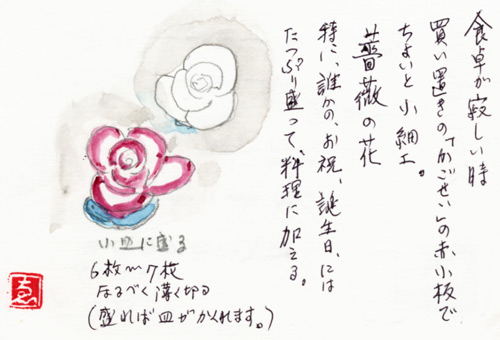 食卓が寂しい時
買い置きの「かごせい」の赤小板で
ちょいと小細工。
薔薇の花
特に、誰かの、お祝、誕生日、には
たっぷり盛って、料理に加える。
小皿に盛る
6枚〜7枚
なるべく薄く切る
(盛れば皿がかくれます。)
ゑ